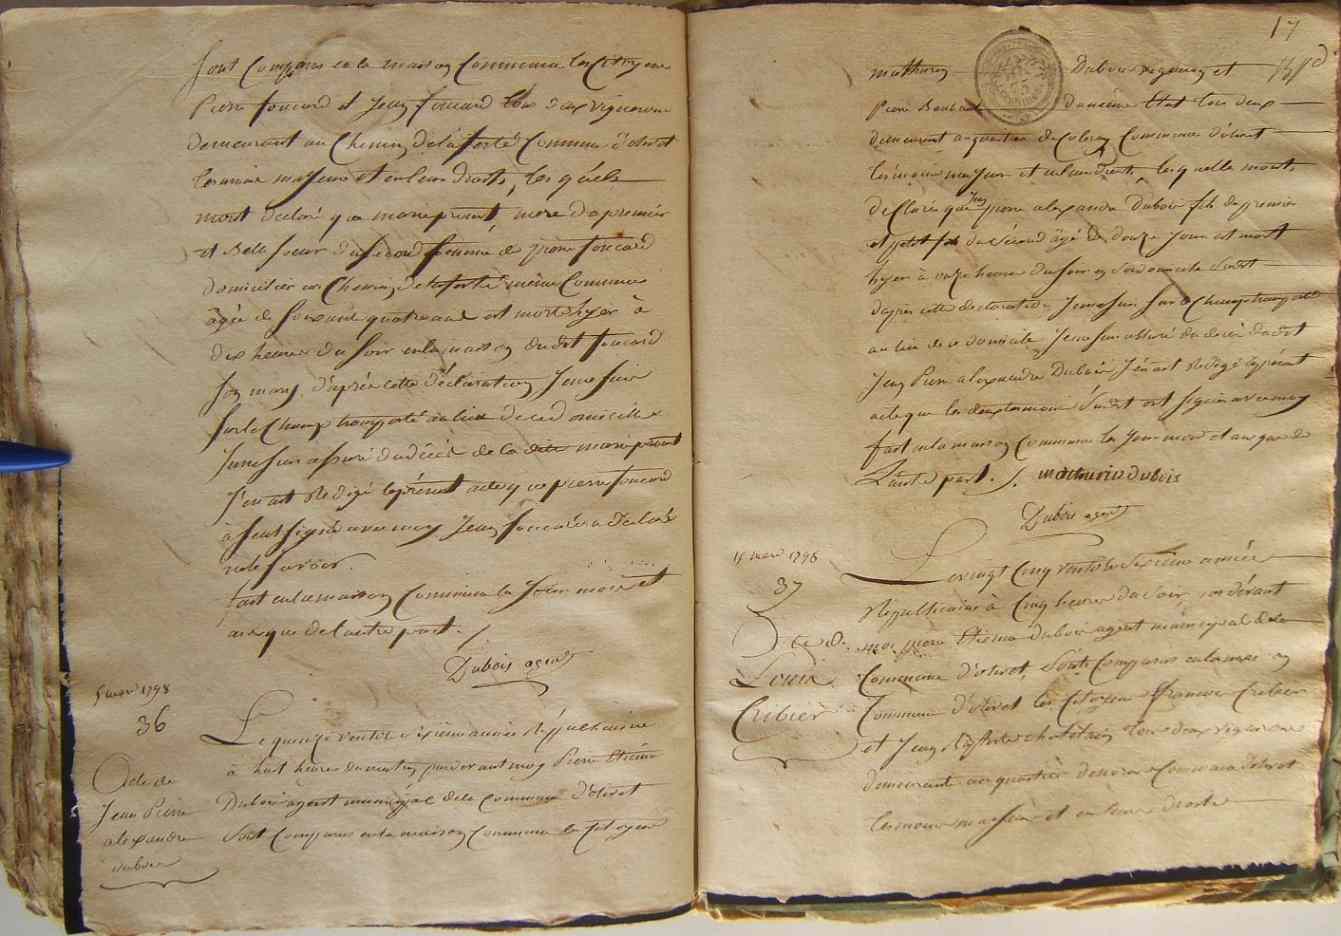 sont Comparus en la maison Commune les Citoyens
Pierre foucard et Jean foucard tous deux vignerons
demeurant au Chemin de la ferté Commune d'olivet
les mêmes majeurs et en leurs droits, les quels
mont déclaré que marie prevent, mere du premier
et Belle soeur du second femme de pierre foucard
domicilier au Chemin de la ferté même Commune
agée de soixante quatre ans est morte hyer à
dix heures du soir en la maison du dit foucard
son mary. d'après cette déclaration Je me suis
sur le Champ transporté au lieu de ce domicille
Je me suis assuré du décès de la dite marie prevent
J'en ait Rédigé le présent acte que pierre foucard
à seul signé avec moy Jean foucard a déclaré
ne le savoir.
fait en la maison Commune les Jour mois et
an que de l'autre part.
Dubois agent
5 mars 1798
36
Le quinze ventôse sixième année Républicaine
à huit heures du matin pardevant moy Pierre Etienne
Dubois agent municipal de la Commune d'olivet
sont Comparus en la maison Commune les Citoyens
acte de
Jean Pierre
alexandre
dubois
17
mathurin Dubois vigneron et
Pierre demême Etat tous deux
demeurant au quartier de Commune d'olivet
les même majeurs et en leurs droits, lesquelle mont
déClarée que Jean pierre alexandre Dubois fils du premier
et petit fils du Second âgé de douze Jours est mort
hyer à onze heures du soir en son domicile Susdit
d'après cette déclaration Je me suis sur le Champ transporté
au lieu de ce domicile Je me suis assuré du décès dudit
Jean Pierre alexandre Dubois J'en ait Rédigé le présent
acte que les dénommés Susdit ont signé avec moy
fait en la maison Commune les Jour mois et an que de
Lautre part. mathurin dubois
Dubois agent
15 mars 1798
37
Le vingt Cinq ventôse sixième année
Républicaine à Cinq heures du soir, pardevant
moi pierre Etienne dubois agent municipal de la
Commune d'olivet, sont Comparus en la maison
Commune d'olivet les Citoyens françois Cribier
et Jean tous deux vignerons
demeurant au quartier Commune d'olivet
les même majeurs et en leurs droits
acte de
Louis
Cribier